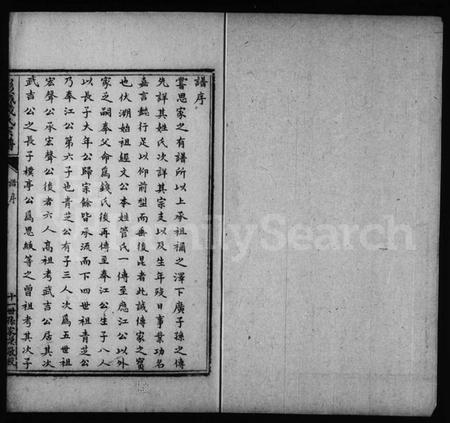 譜序
嘗思家之有譜所以上承祖禰之澤下廣子孫之傳
先詳其姓氏次詳其宗支以及生年歿日事業功名
嘉言懿行足以仰前型而垂後昆者此誠傳家之寶
也伏溯始祖經文公本姓管氏一傳至應江公以外
家之嗣奉父命為錢氏後再傳至奉江公生子八人
以長子大年公歸宗餘皆承流而下四世祖青芝公
乃奉江公第六子也青芝公有子三人次為五世祖
宏聲公承宏聲公後者六人高祖考武吉公居其次
武吉公之長子樸亭公為思綬等之曾祖考其次子
譜序
FamilySearch